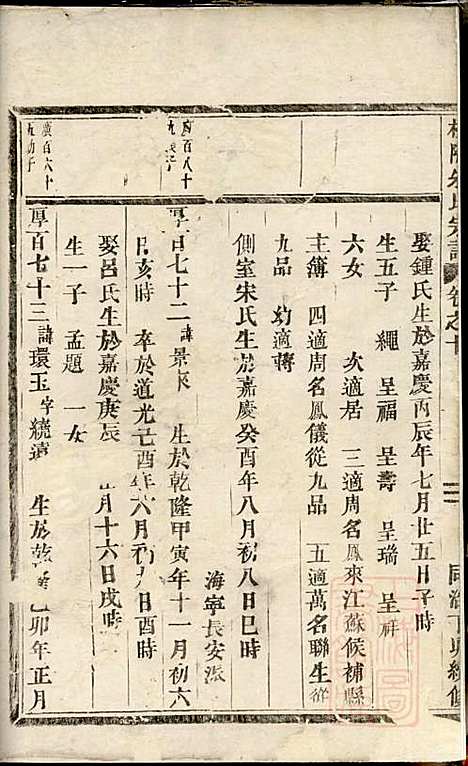 氏宗譜 卷之十
同治丁卯續修
娶鍾氏生於嘉慶丙辰年七月廿五日子時
生五子 繩 呈福 呈壽 呈瑞 呈祥
六女 次適居 三適周名鳳來江蘇候補縣
主簿 四適周名鳳儀從九品 五適萬名聯生從
九品 幼適蔣
側室宋氏生於嘉慶癸酉年八月初八日巳時
海寧長安派
百八十
厚百七十二 諱景 生於乾隆甲寅年十一月初六
日亥時 卒於道光 酉年六月初九日酉時
娶呂氏生於嘉慶庚辰 月十六日戌時
生一子 孟題 一女
廣百六十
五幼子
厚百七十三 諱環玉 字繞遠 生於乾隆己卯年正月